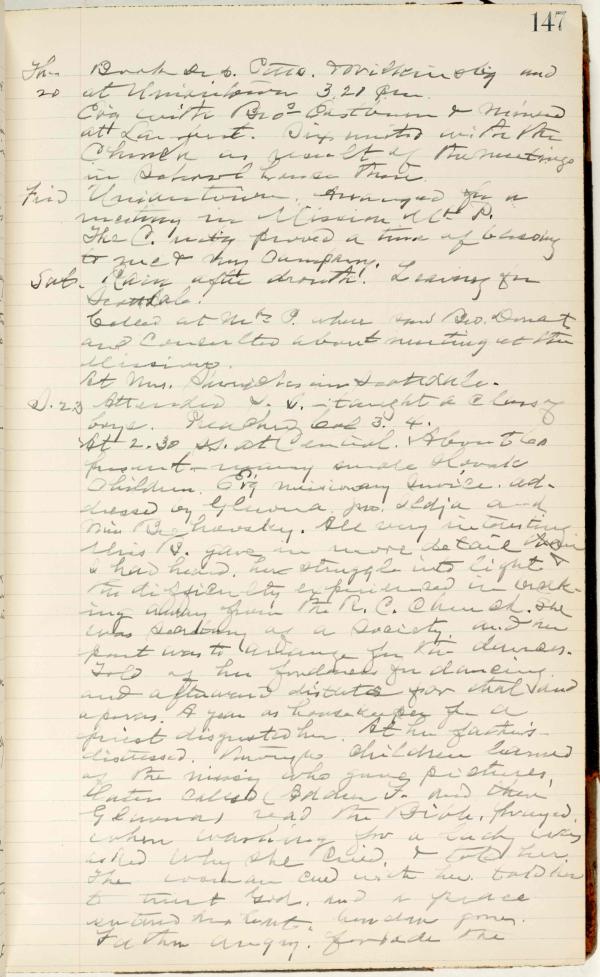 147
Thu Book S. S. Pitts. & Wilkinsbg and
20 at Uniontown 3.20 pm.
Evg with Bros & mined
at. Six united with the
Church as result of the meetings
in School House there.
Frid Uniontown. Arranged for a
meeting in Mission Mt. P.
The C. mtg proved a time of blessing
to me & my company.
Sat. Rain after drouth! Leaving for
Scottdale.
Called at Mt. P. where saw Bro. Donat
and consulted about meeting at the
Mission.
At Mrs. in Scottdale.
S. 23 Attended S. S. - taught a class of
boys. Preached Col 3. 4.
At 2.30 S.S. at Central. About 60
present - many Slovak
Children. Evg missionary service. ad-
dressed by Jno. and
Miss B. All very interesting
Miss B. gave in more detail than
I had heard, her struggle into light &
the difficulty experienced in break-
ing away from the R. C. Church. She
was secretary of a society. and her
part was to arrange for the dances.
Told of her fondness for dancing
and afterward distaste for that and
operas. A year as housekeeper for a
priest disgusted her. At her father's
distressed. Through children learned
of the missy who gave pictures,
Later called ( and then
read the Bible, prayed.
When washing for a lady was
asked why she cried, & told her.
The woman cried with her. told her
to trust God. and a peace
entered her heart. burden gone.
Father angry. forbade the